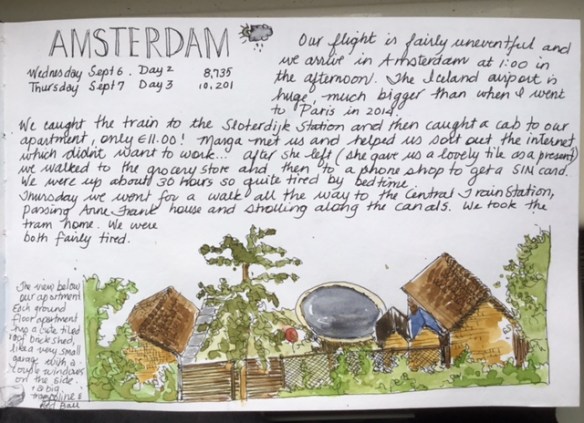 AMSTERDAM
Wednesday Sept 6. Day 2 8,735
Thursday Sept 7 Day 3 10,201
Our flight is fairly uneventful and
we arrive in Amsterdam at 1:00 in
the afternoon. The Iceland airport is
huge, much bigger than when I went
to Paris in 2014.
We caught the train to the Sloterdijk Station and then caught a cab to our
apartment, only €11.00! Marga met us and helped us sort out the internet
which didn't want to work... after she left (she gave us a lovely tile as a present)
we walked to the grocery store and then to a phone shop to get a SIM card.
We were up about 30 hours so quite tired by bedtime.
Thursday we went for a walk all the way to the Central Train Station,
passing Anne Frank house and strolling along the canals. We took the
tram home. We were
both fairly tired.
The view below
our apartment
Each ground
floor apartment
has a cute tiled
roof back shed,
like a very small
garage with a
couple windows
on the side.
a big
trampoline &